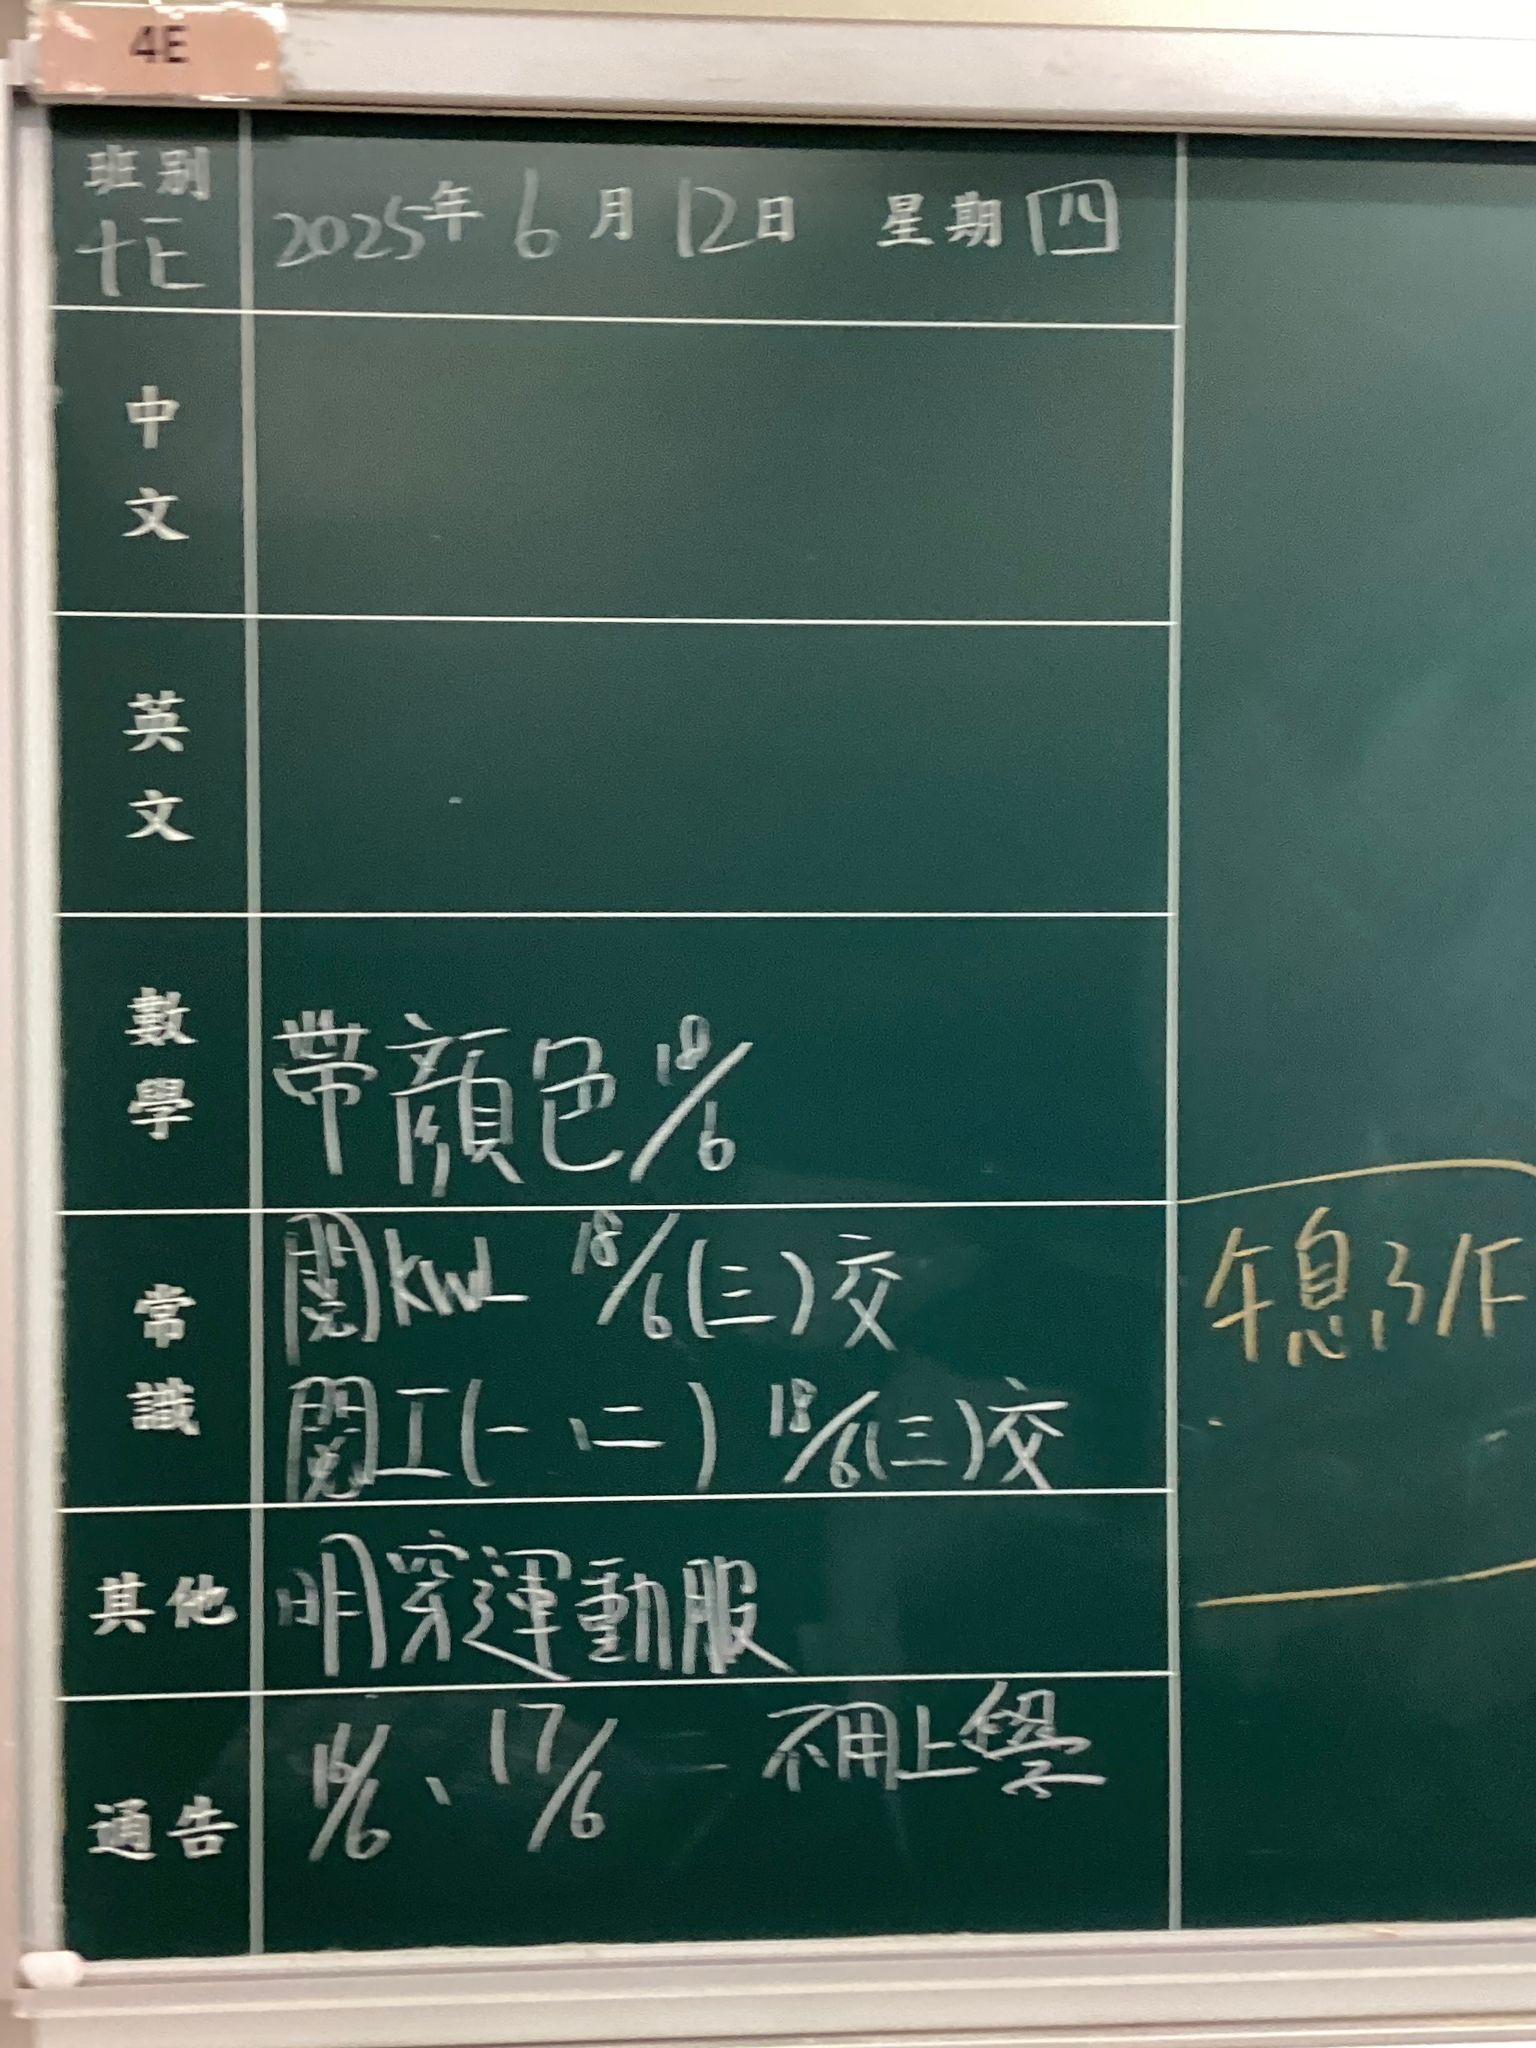 4E
班別
4E
2025年 6 月 12日 星期四
中文
英文
數學
帶顏色18/6
常識
閱KWL 18/6(三)交
閱工(一、二) 18/6(三)交
其他
明穿運動服
通告
16/6、17/6 — 不用上學
午息3/F